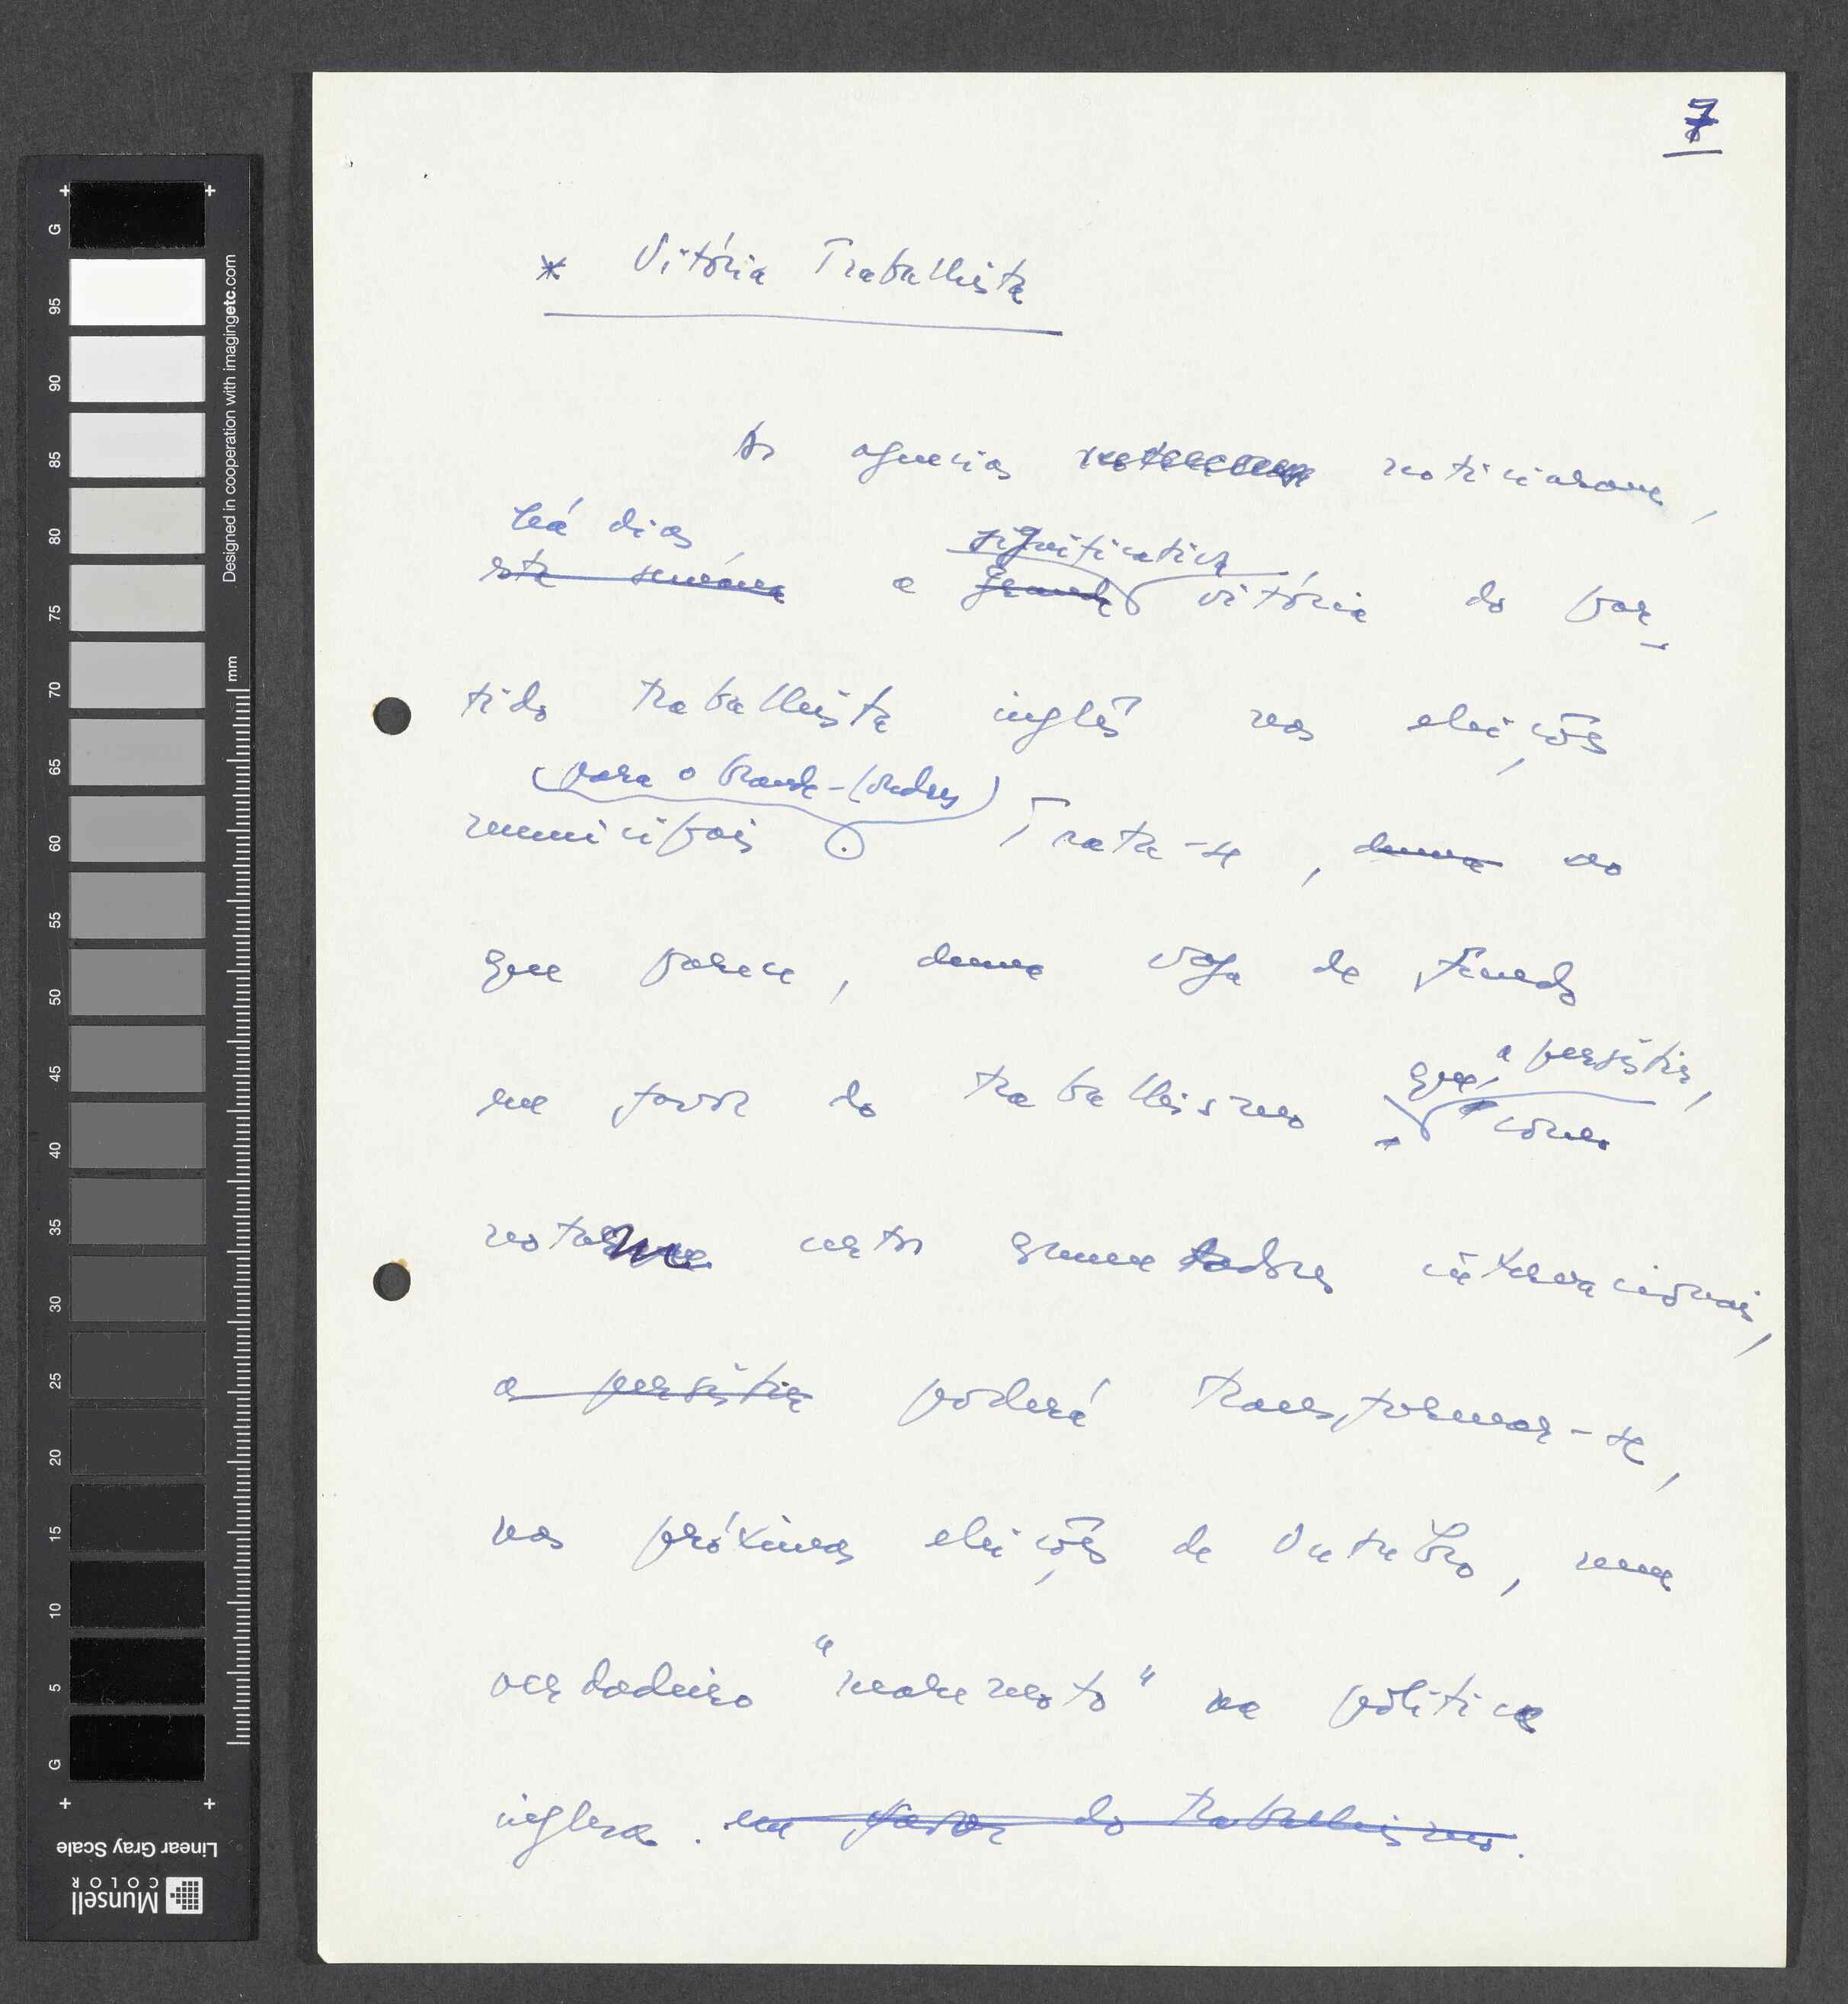 7
* Vitória Trabalhista
As agencias noticiaram,
há dias, significativa
esta semana a grande vitória do par-
tido trabalhista inglês nas eleições
(para o
municipais. Trata-se, duma ao
que parece, duma vaga de fundo
em favor do trabalhismo que, a persistir,
como
notam certos comentadores internacionais,
a persistir poderá transformar-se,
nas próximas eleições de Outubro, num
verdadeiro "maremoto" na política
inglesa. em favor do trabalhismo.
G 95 90 85 80 75 70 65 60 55 50 45 40 35 30 25 20 15 10 5 G
mm
Designed in cooperation with imagingetc.com
Linear Gray Scale
Munsell
COLOR